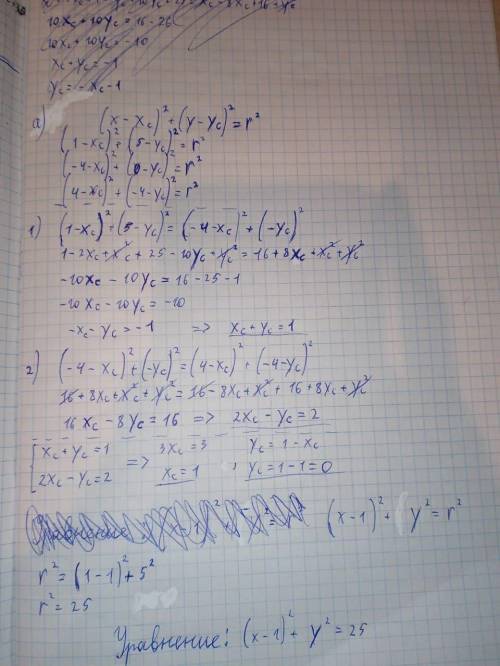 10xc + 10yc = 16 - 26
10xc + 10yc = -10
xc + yc = -1
yc = -xc - 1
а) (x - xc)² + (y - yc)² = r²
(1 - xc)² + (5 - yc)² = r²
(-4 - xc)² + (0 - yc)² = r²
(4 - xc)² + (-4 - yc)² = r²
1) (1 - xc)² + (5 - yc)² = (-4 - xc)² + (-yc)²
1 - 2xc + xc² + 25 - 10yc + yc² = 16 + 8xc + xc² + yc²
-10xc - 10yc = 16 - 25 - 1
-10xc - 10yc = -10
-xc - yc = -1 => xc + yc = 1
2) (-4 - xc)² + (-yc)² = (4 - xc)² + (-4 - yc)²
16 + 8xc + xc² + yc² = 16 - 8xc + xc² + 16 + 8yc + yc²
16xc - 8yc = 16 => 2xc - yc = 2
{ xc + yc = 1 => 3xc = 3 yc = 1 - xc
2xc - yc = 2 xc = 1 , yc = 1 - 1 = 0
(x - 1)² + y² = r²
r² = (1 - 1)² + 5²
r² = 25
Уравнение: (x - 1)² + y² = 25